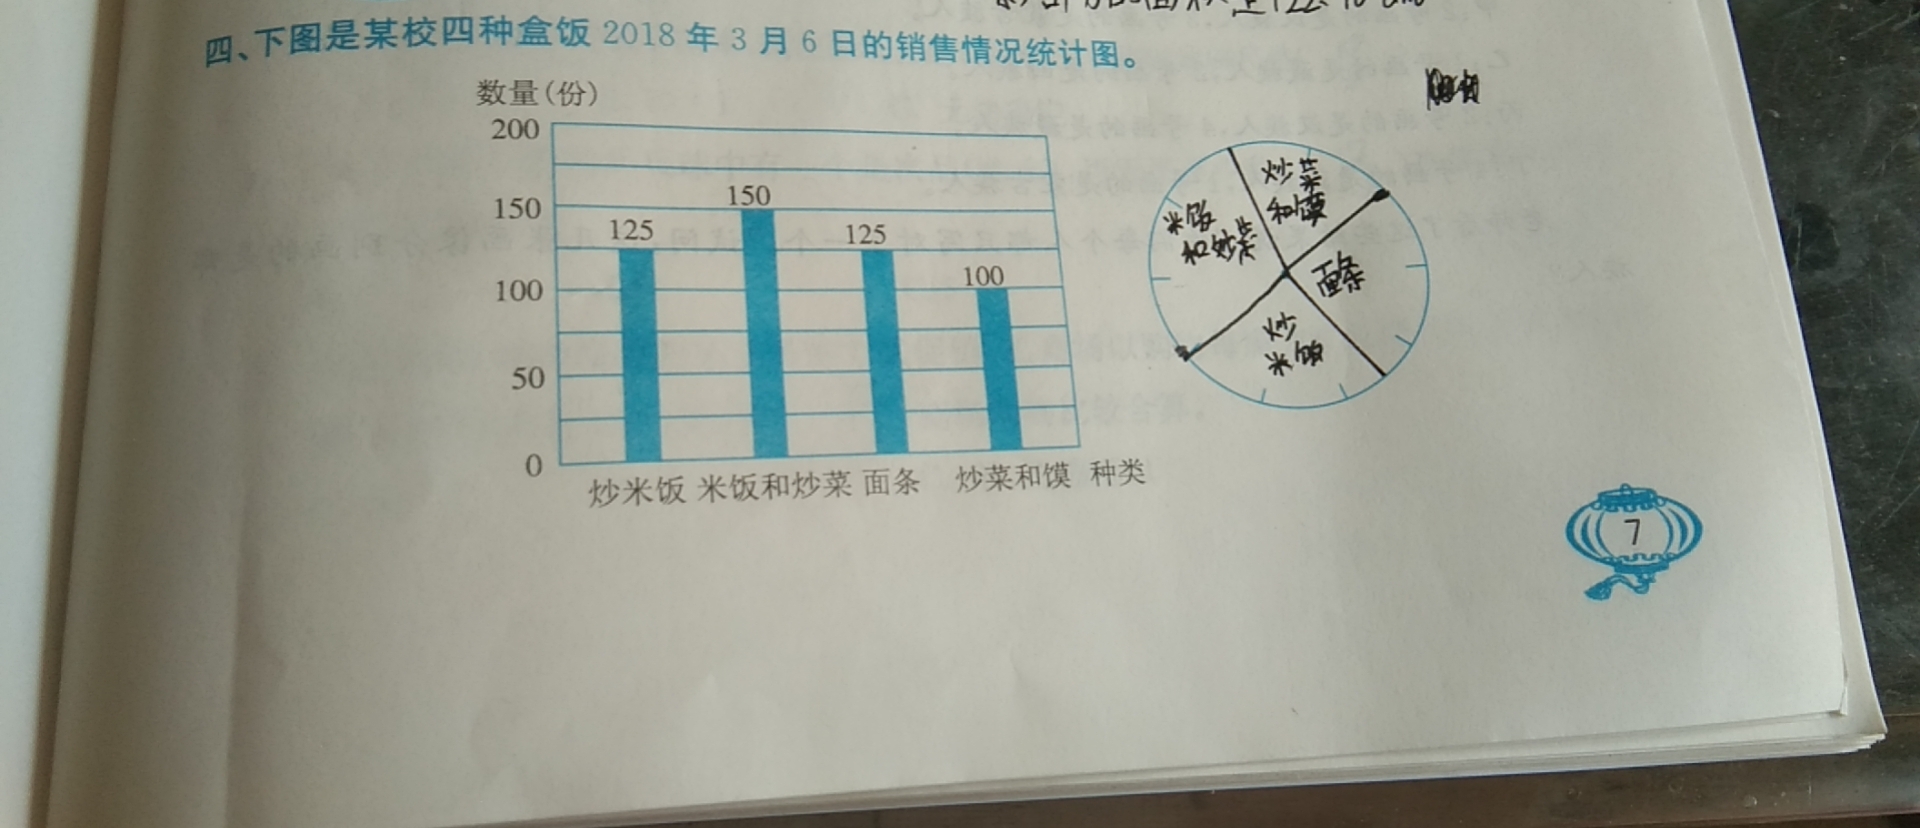 四、下图是某校四种盒饭 2018 年 3 月 6 日的销售情况统计图。
数量(份)
200
150
100
50
0
125
150
125
100
炒米饭 米饭和炒菜 面条 炒菜和馍 种类
炒菜
和馍
米饭
和炒菜
面条
炒
米饭
7